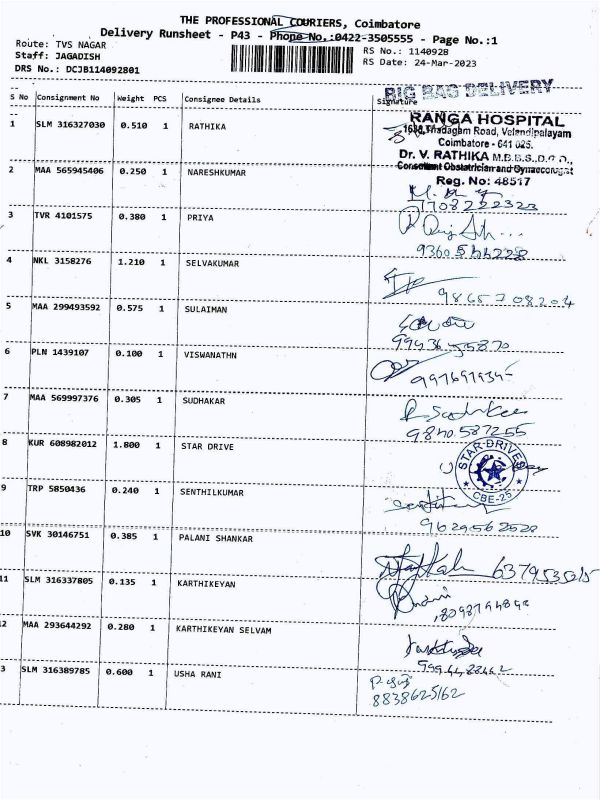 THE PROFESSIONAL COURIERS, Coimbatore
Delivery Runsheet - P43 - Phone No.:0422-3505555 - Page No.:1
Route: TVS NAGAR
Staff: JAGADISH
DRS No.: DCJB114092801
RS No.: 114092B
RS Date: 24-Mar-2023
BIG BAG DELIVERY
S No Consignment No Weight PCS Consignee Details Signature
1 SLM 316327030 0.510 1 RATHIKA
RANGA HOSPITAL
Thadagam Road, Velandipalayam
Coimbatore - 641 025.
Dr. V. RATHIKA M.B.B.S.,D.G.O.,
Consultant Obstatrician and Gynaecologist
Reg. No: 48517
2 MAA 565945406 0.250 1 NARESHKUMAR
7708222323
3 TVR 4101575 0.380 1 PRIYA
9360544228
4 NKL 3158276 1.210 1 SELVAKUMAR
9865708204
5 MAA 299493592 0.575 1 SULAIMAN
9943655870
6 PLN 1439107 0.100 1 VISWANATHN
7 MAA 569997376 0.305 1 SUDHAKAR
9840587255
8 KUR 608982012 1.800 1 STAR DRIVE
STAR DRIVES
CBE-25
9 TRP 5850436 0.240 1 SENTHILKUMAR
9629562528
10 SVK 30146751 0.385 1 PALANI SHANKAR
11 SLM 316337805 0.135 1 KARTHIKEYAN
12 MAA 293644292 0.280 1 KARTHIKEYAN SELVAM
3 SLM 316389785 0.600 1 USHA RANI
8838625162